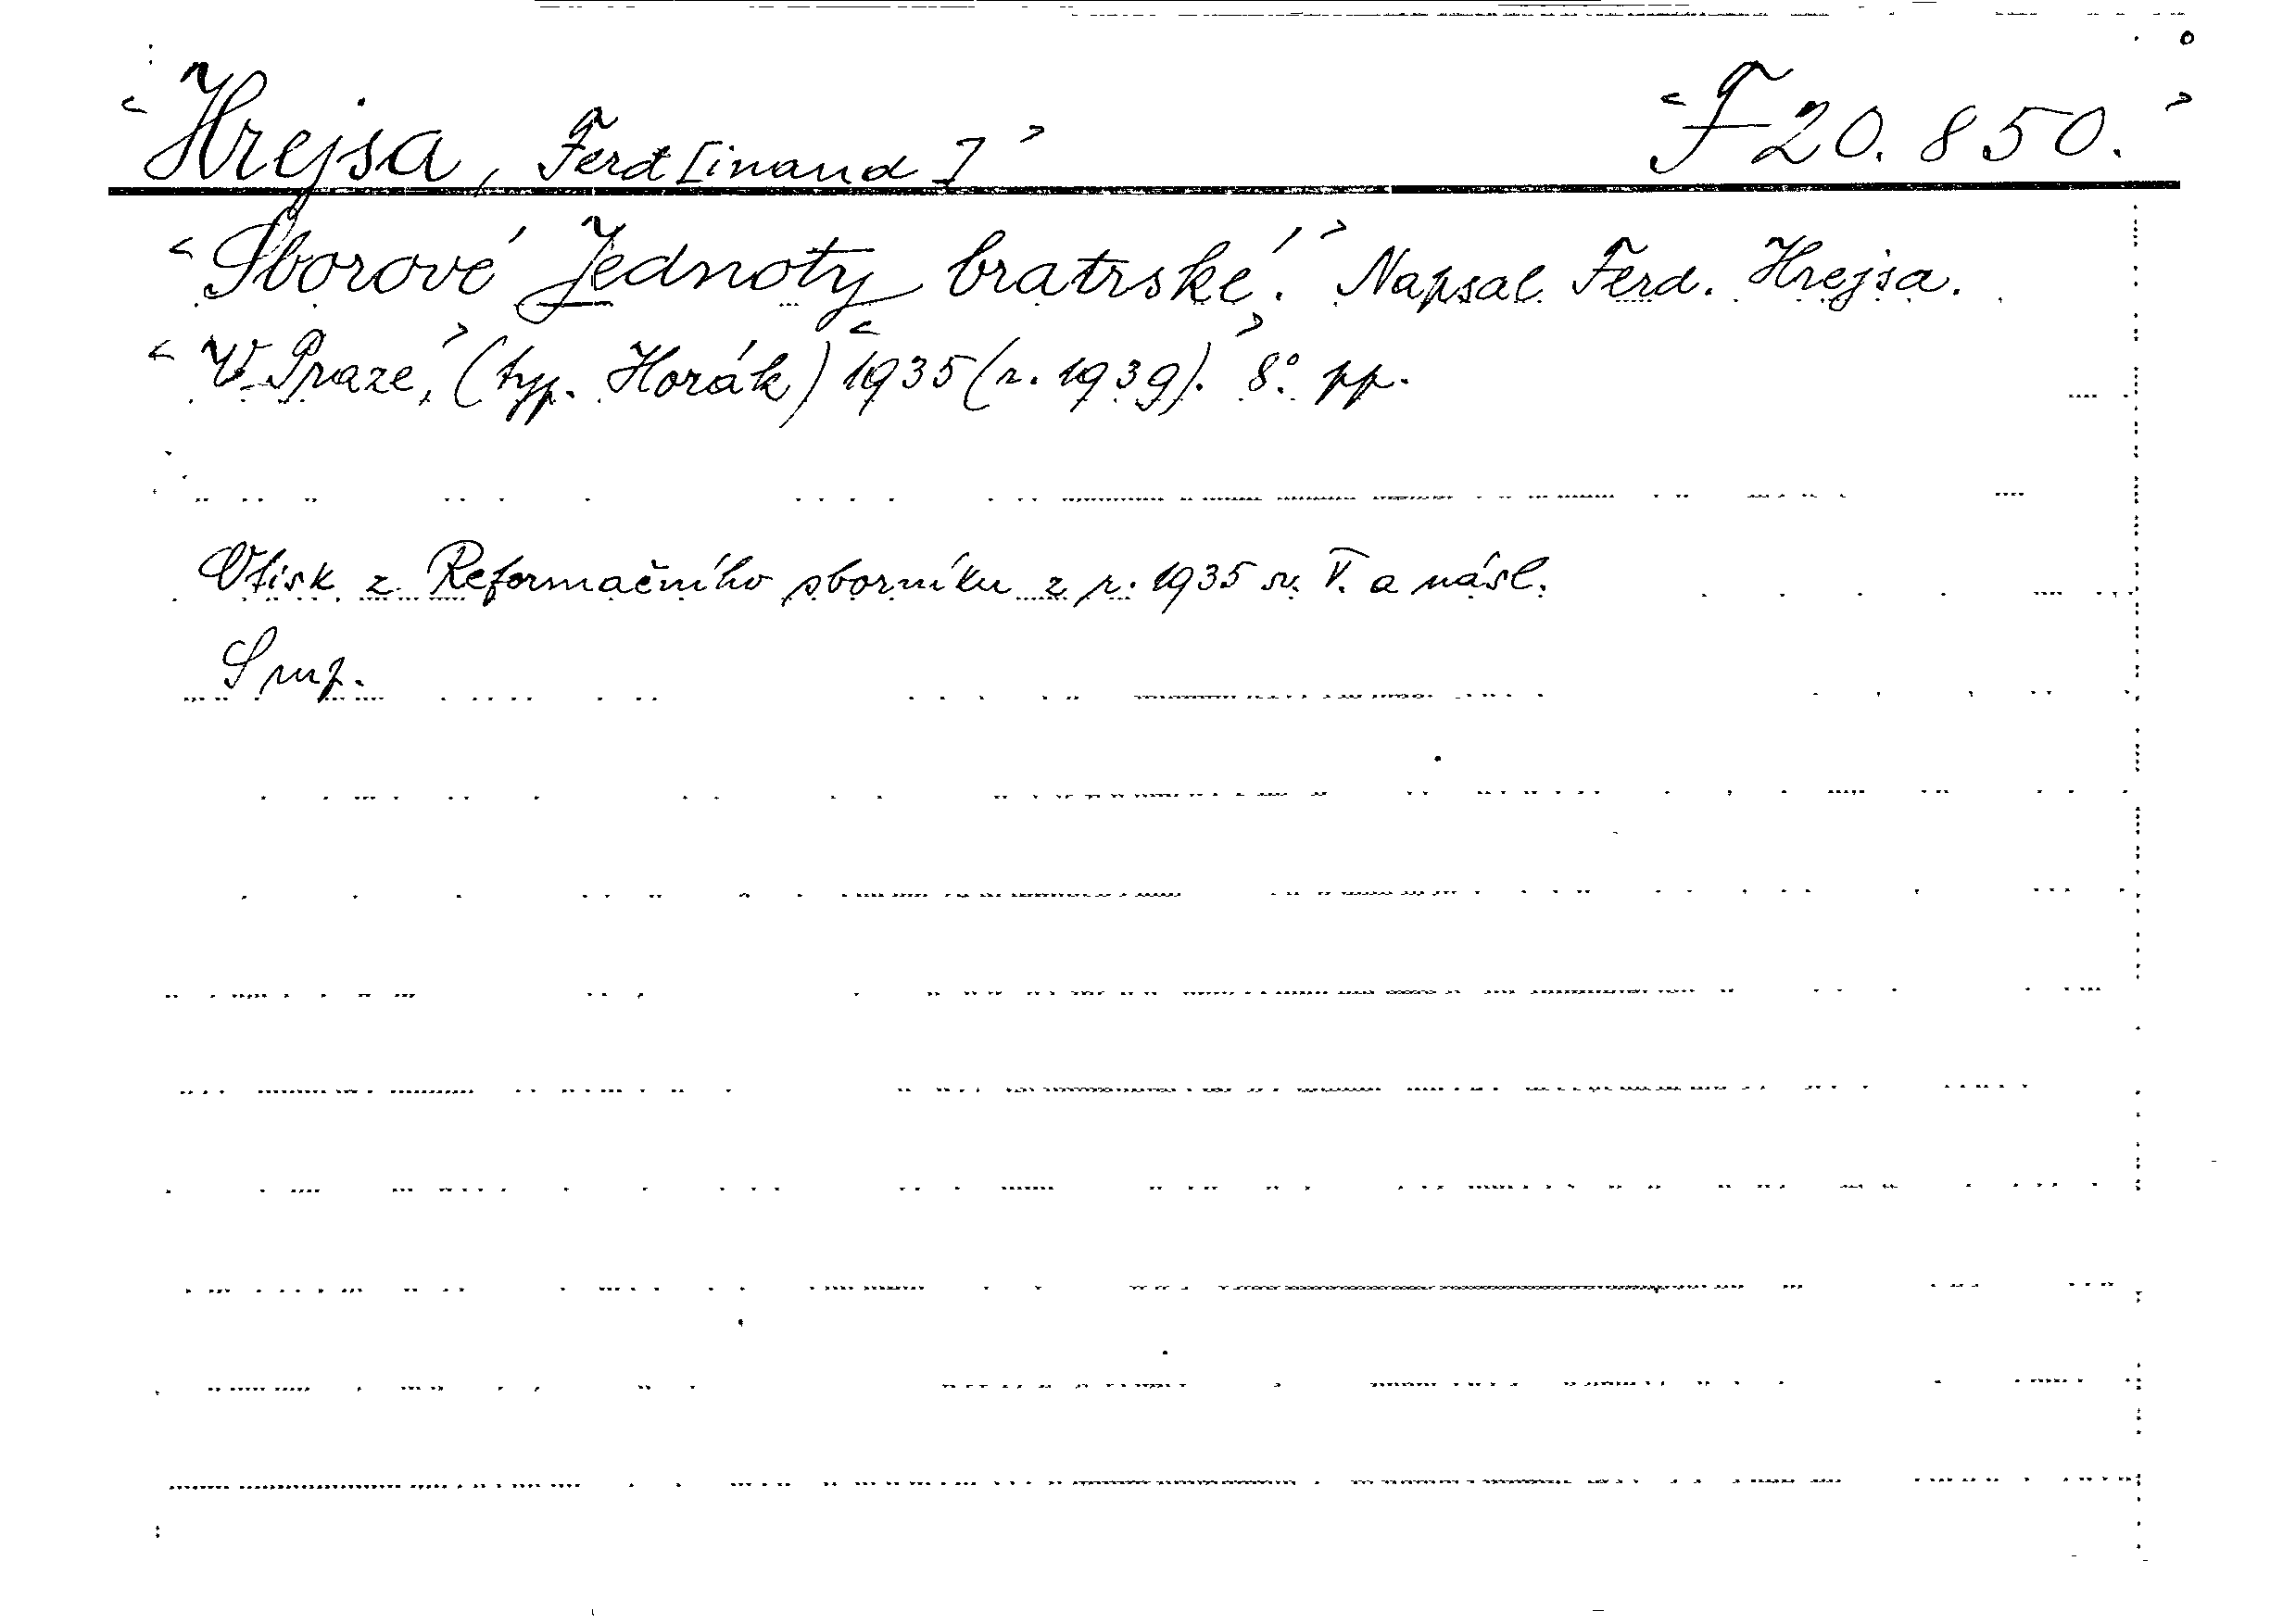 <Hrejsa, Ferd[inand]> <F 20.850.>
<Sborové Jednoty bratrské.> Napsal Ferd. Hrejsa.
<V Praze,> (typ. Horák) <1935 (r. 1939).> 8°. pp.
Otisk z Reformačního sborníku z r. 1935 sv. V. a násl.